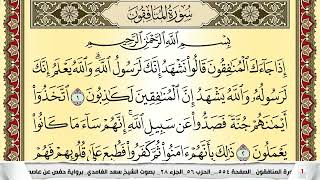 سُورَةُ المُنَافِقُونَ
بِسْمِ اللَّهِ الرَّحْمَٰنِ الرَّحِيمِ
إِذَا جَاءَكَ ٱلْمُنَٰفِقُونَ قَالُوا۟ نَشْهَدُ إِنَّكَ لَرَسُولُ ٱللَّهِ وَٱللَّهُ يَعْلَمُ إِنَّكَ
لَرَسُولُهُۥ وَٱللَّهُ يَشْهَدُ إِنَّ ٱلْمُنَٰفِقِينَ لَكَٰذِبُونَ ١ ٱتَّخَذُوٓا۟
أَيْمَٰنَهُمْ جُنَّةً فَصَدُّوا۟ عَن سَبِيلِ ٱللَّهِ إِنَّهُمْ سَآءَ مَا كَانُوا۟
يَعْمَلُونَ ٢ ذَٰلِكَ بِأَنَّهُمْ ءَامَنُوا۟ ثُمَّ كَفَرُوا۟ فَطُبِعَ عَلَىٰ قُلُوبِهِمْ فَهُمْ
1 رة المنافقون . الصفحة ٥٥٤ . الحزب ٥٦ . الجزء ٢٨ . بصوت الشيخ سعد الغامدي . برواية حفص عن عاصم